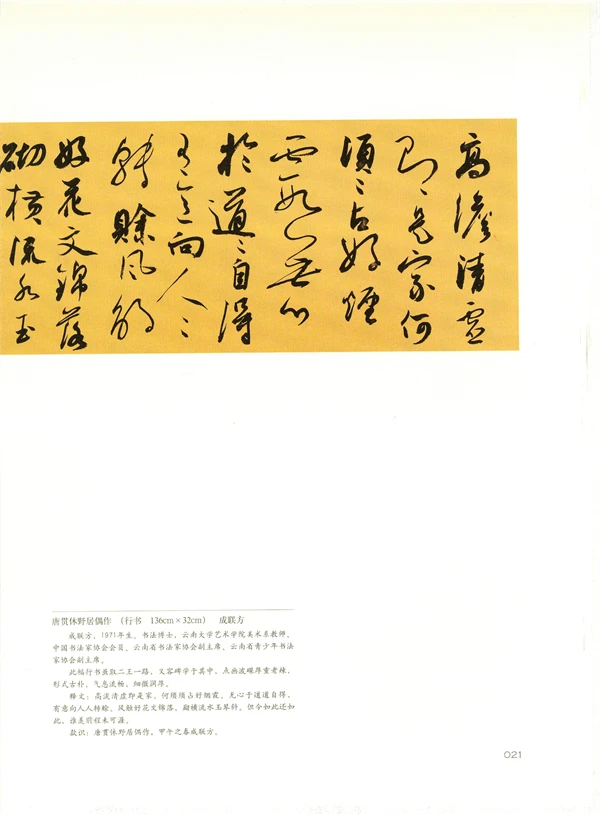 高澹清虚
即是家何
須〻占好煙
霞無心
於道〻自得
有意向人〻
轉賒风触
好花文錦落
砌横流水玉
唐贯休野居偶作 （行书 136cm×32cm） 成联方
成联方，1971年生。书法博士，云南大学艺术学院美术系教师，
中国书法家协会会员，云南省书法家协会副主席，云南省青少年书法
家协会副主席。
此幅行书虽取二王一路，又容碑学于其中，点画波磔厚重老辣，
形式古朴，气息流畅，细微润厚。
释文：高淡清虚即是家，何须须占好烟霞。无心于道道自得，
有意向人人转赊。风触好花文锦落，砌横流水玉琴斜。但令如此还如
此，谁羡前程未可涯。
款识：唐贯休野居偶作，甲午之春成联方。
021